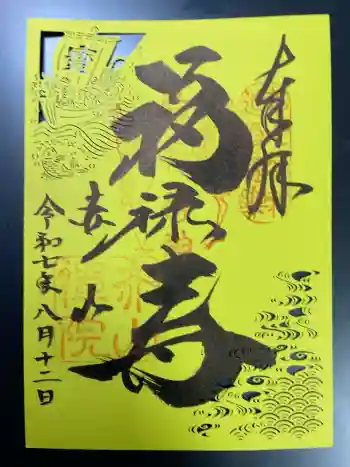 奉拝
福禄寿
赤山
令和七年八月十二日